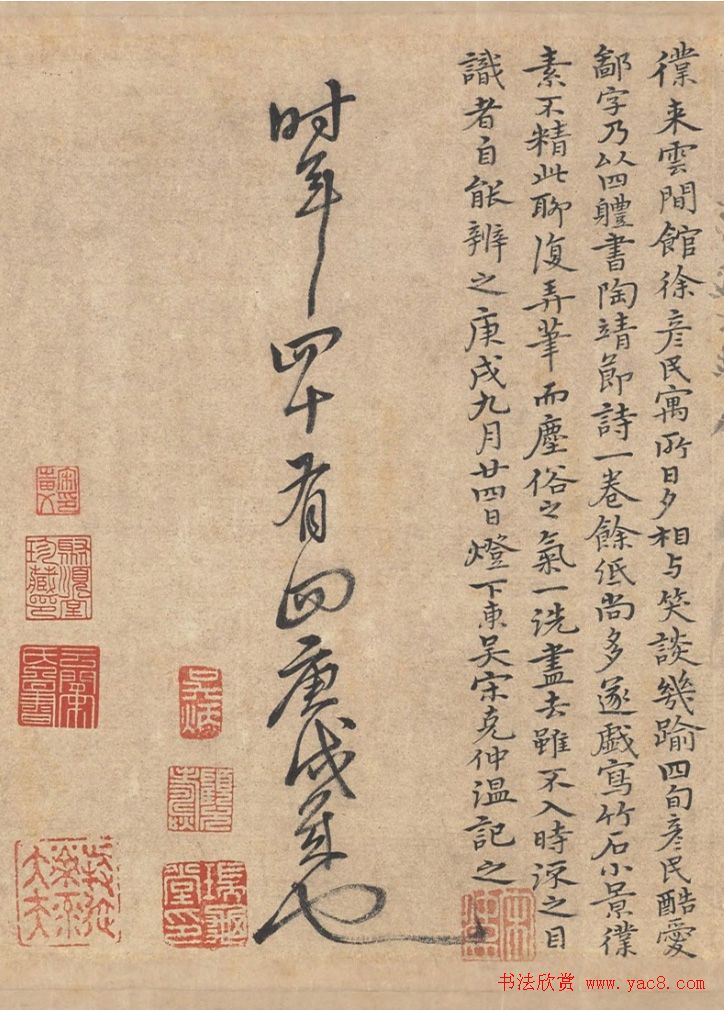 僕来雲間館徐彦民寓所日夕相与笑談幾踰四旬彦民酷愛
鄙字乃以四體書陶靖節詩一卷餘紙尚多遂戲寫竹石小景僕
素不精此聊復弄筆而塵俗之氣一洗盡去雖不入時流之目
識者自能辨之庚戌九月廿四日燈下東吳宋克仲温記之
时年四十有四庚戌歲也
书法欣赏 www.yac8.com